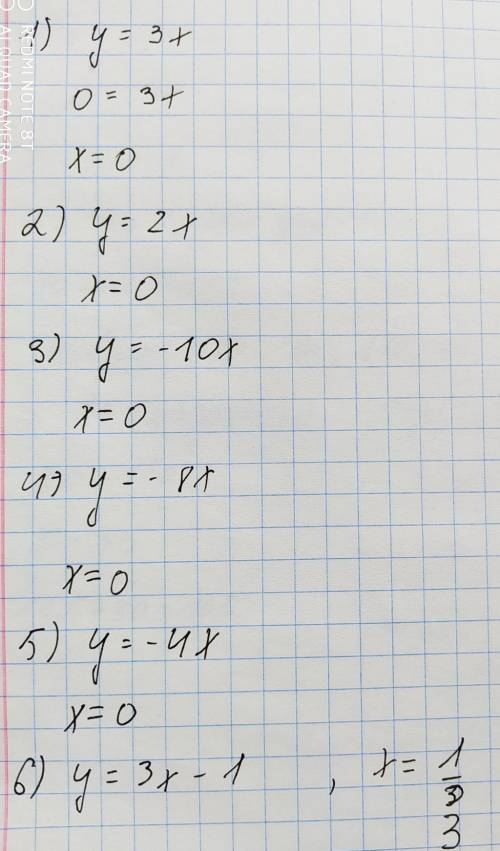 1) y = 3x
0 = 3x
x = 0
2) y = 2x
x = 0
3) y = -10x
x = 0
4) y = -8x
x = 0
5) y = -4x
x = 0
6) y = 3x - 1 , x = 1/3
3
REDMI NOTE 8T
AI QUAD CAMERA